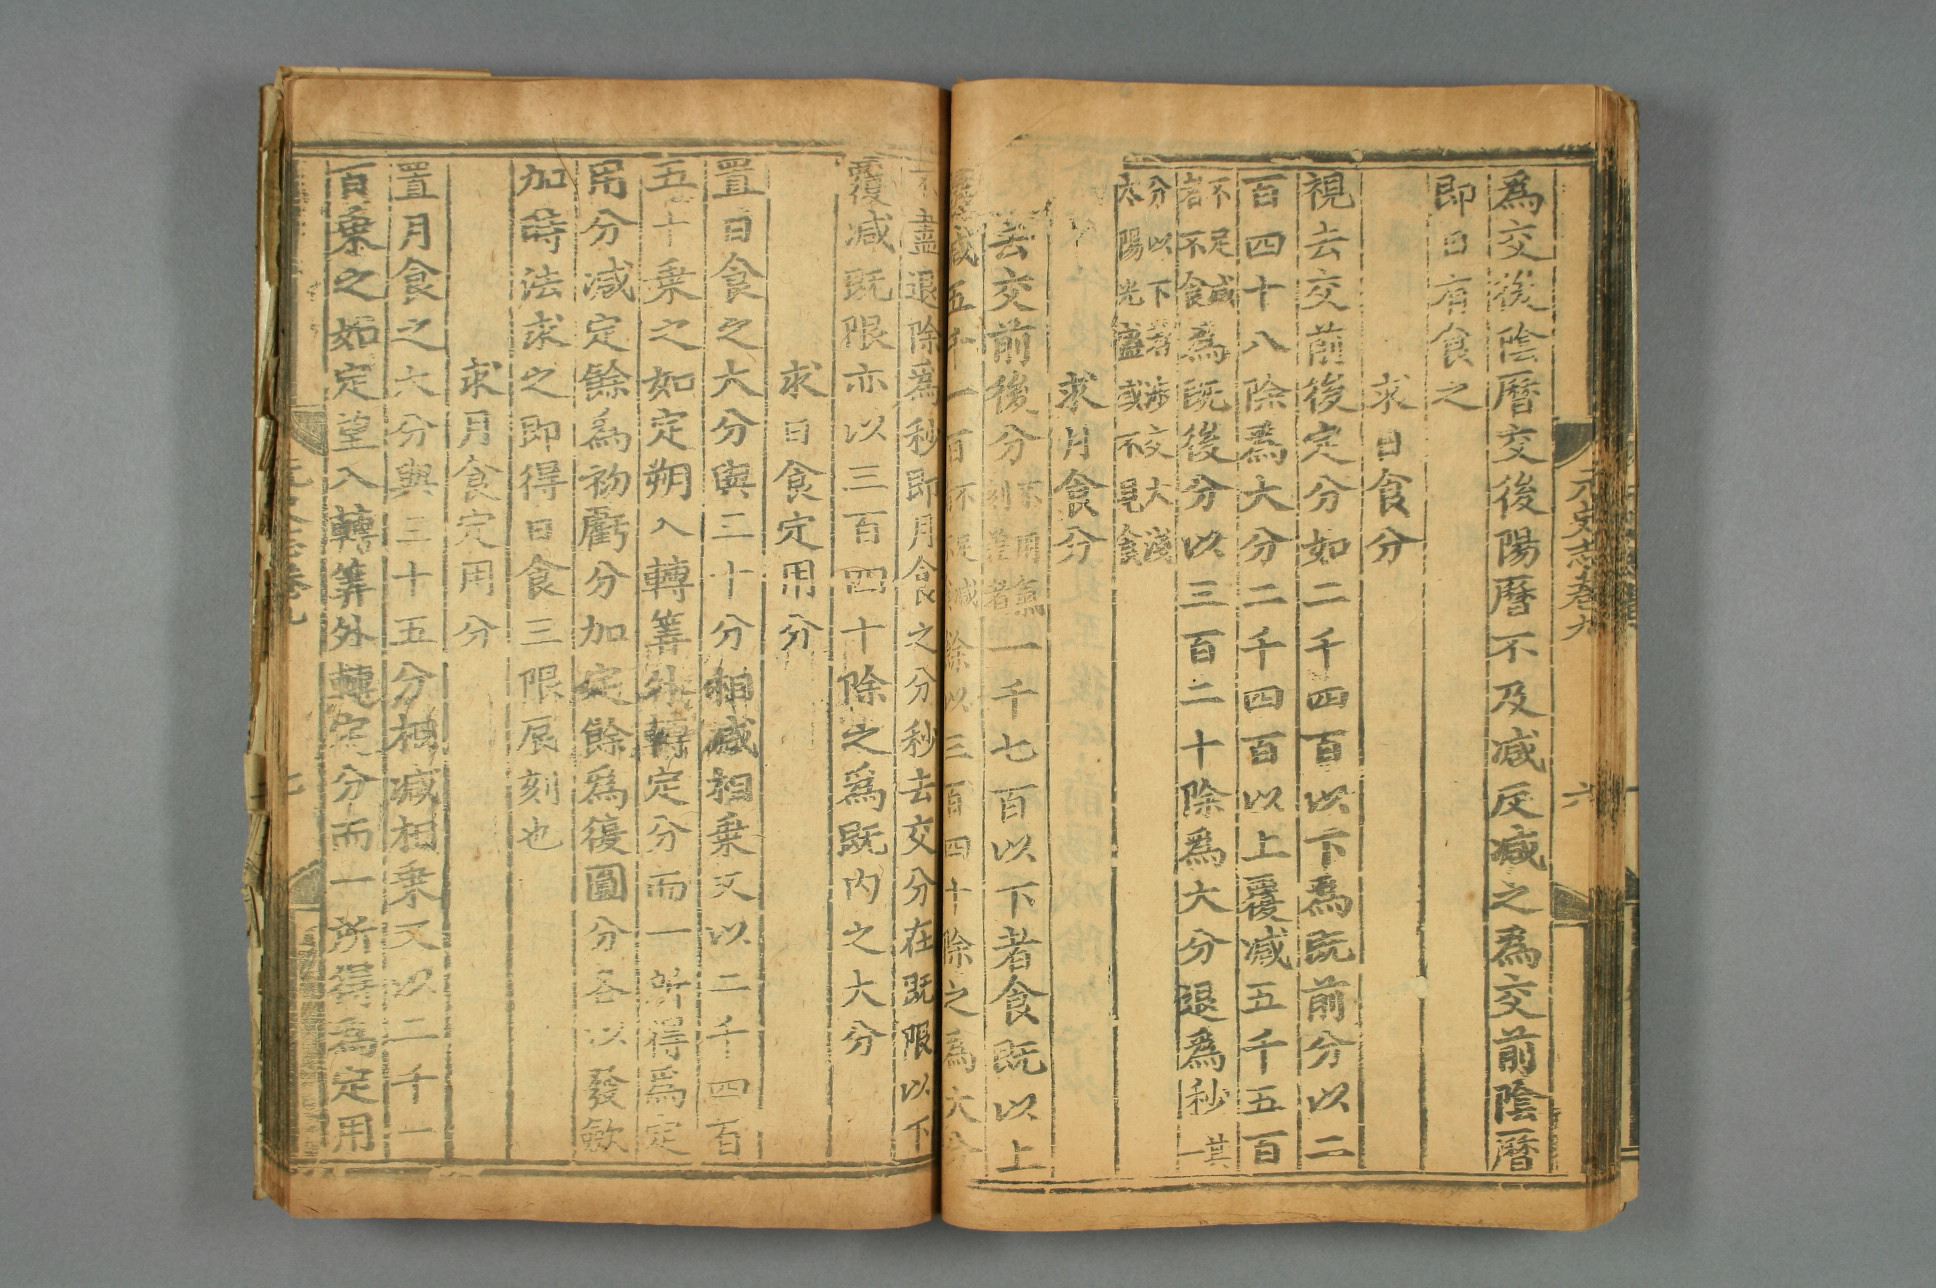 元史志卷九
六
為交後陰曆交後陽曆不及减反减之為交前陰曆
即日有食之
求日食分
視去交前後定分如二千四百以下為既前分以二
百四十八除為大分二千四百以上覆减五千五百
不足减者不食為既後分以三百二十除為大分退為秒其一
分以下者涉交太淺太陽光盛或不見食
求月食分
去交前後分不用氣刻差者一千七百以下者食既以上
覆减五千一百不足减者除以三百四十除之為大分
不盡退除為秒即月食之分秒去交分在既限以下
覆减既限亦以三百四十除之為既内之大分
求日食定用分
置日食之大分與三十分相减相乗又以二千四百
五十乗之如定朔入轉筭外轉定分而一所得為定
用分减定餘為初虧分加定餘為復圓分各以發斂
加時法求之即得日食三限辰刻也
求月食定用分
置月食之大分與三十五分相减相乗又以二千一
百乗之如定望入轉筭外轉定分而一所得為定用
元史志卷九
七